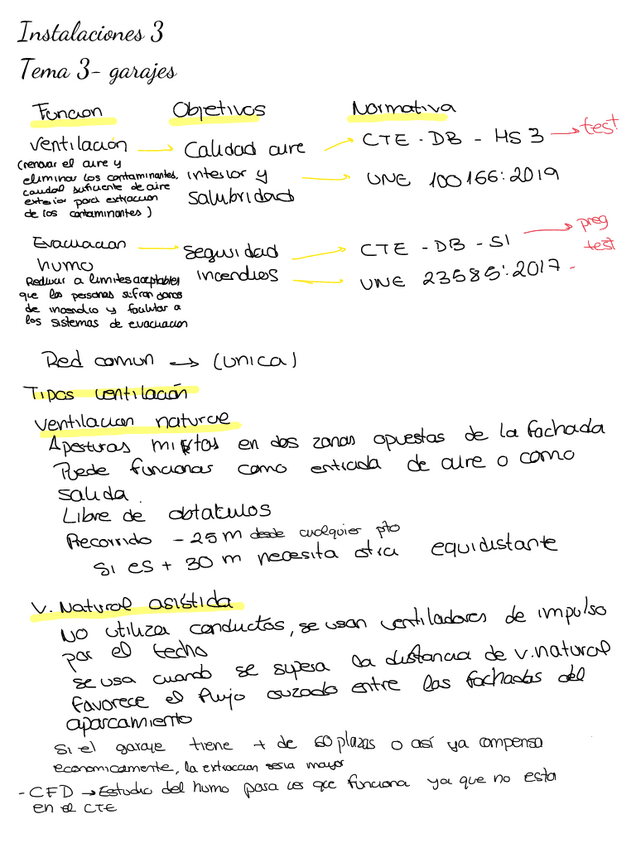 Instalaciones 3
Tema 3- garajes
Funcion Objetivos Normativa
Ventilación → Calidad aire interior y salubridad → CTE - DB - HS 3 → test
(renovar el aire y
eliminar los contaminantes,
caudal suficiente de aire
exterior para extraccion
de los contaminantes)
→ UNE 100166:2019
Evacuacion humo → seguridad incendios → CTE - DB - SI → preg test
Reducir a limites aceptables
que las personas sufran daños
de incendio y facilitar a
los sistemas de evacuacion
→ UNE 23585:2017 -
Red comun → (unica)
Tipos ventilación
Ventilacion natural
Aperturas mixtas en dos zonas opuestas de la fachada
Puede funcionar como entrada de aire o como
salida.
Libre de obtaculos
Recorrido - 25 m desde cualquier pto
Si es + 30 m necesita otra equidistante
V. Natural asistida
No utiliza conductos, se usan ventiladores de impulso
por el techo
se usa cuando se supera la distancia de v. natural
favorece el flujo cruzado entre las fachadas del
aparcamiento
Si el garaje tiene + de 60 plazas o así ya compensa
economicamente, la extraccion seria mayor
- CFD → Estudio del humo para ver que funciona ya que no esta
en el CTE